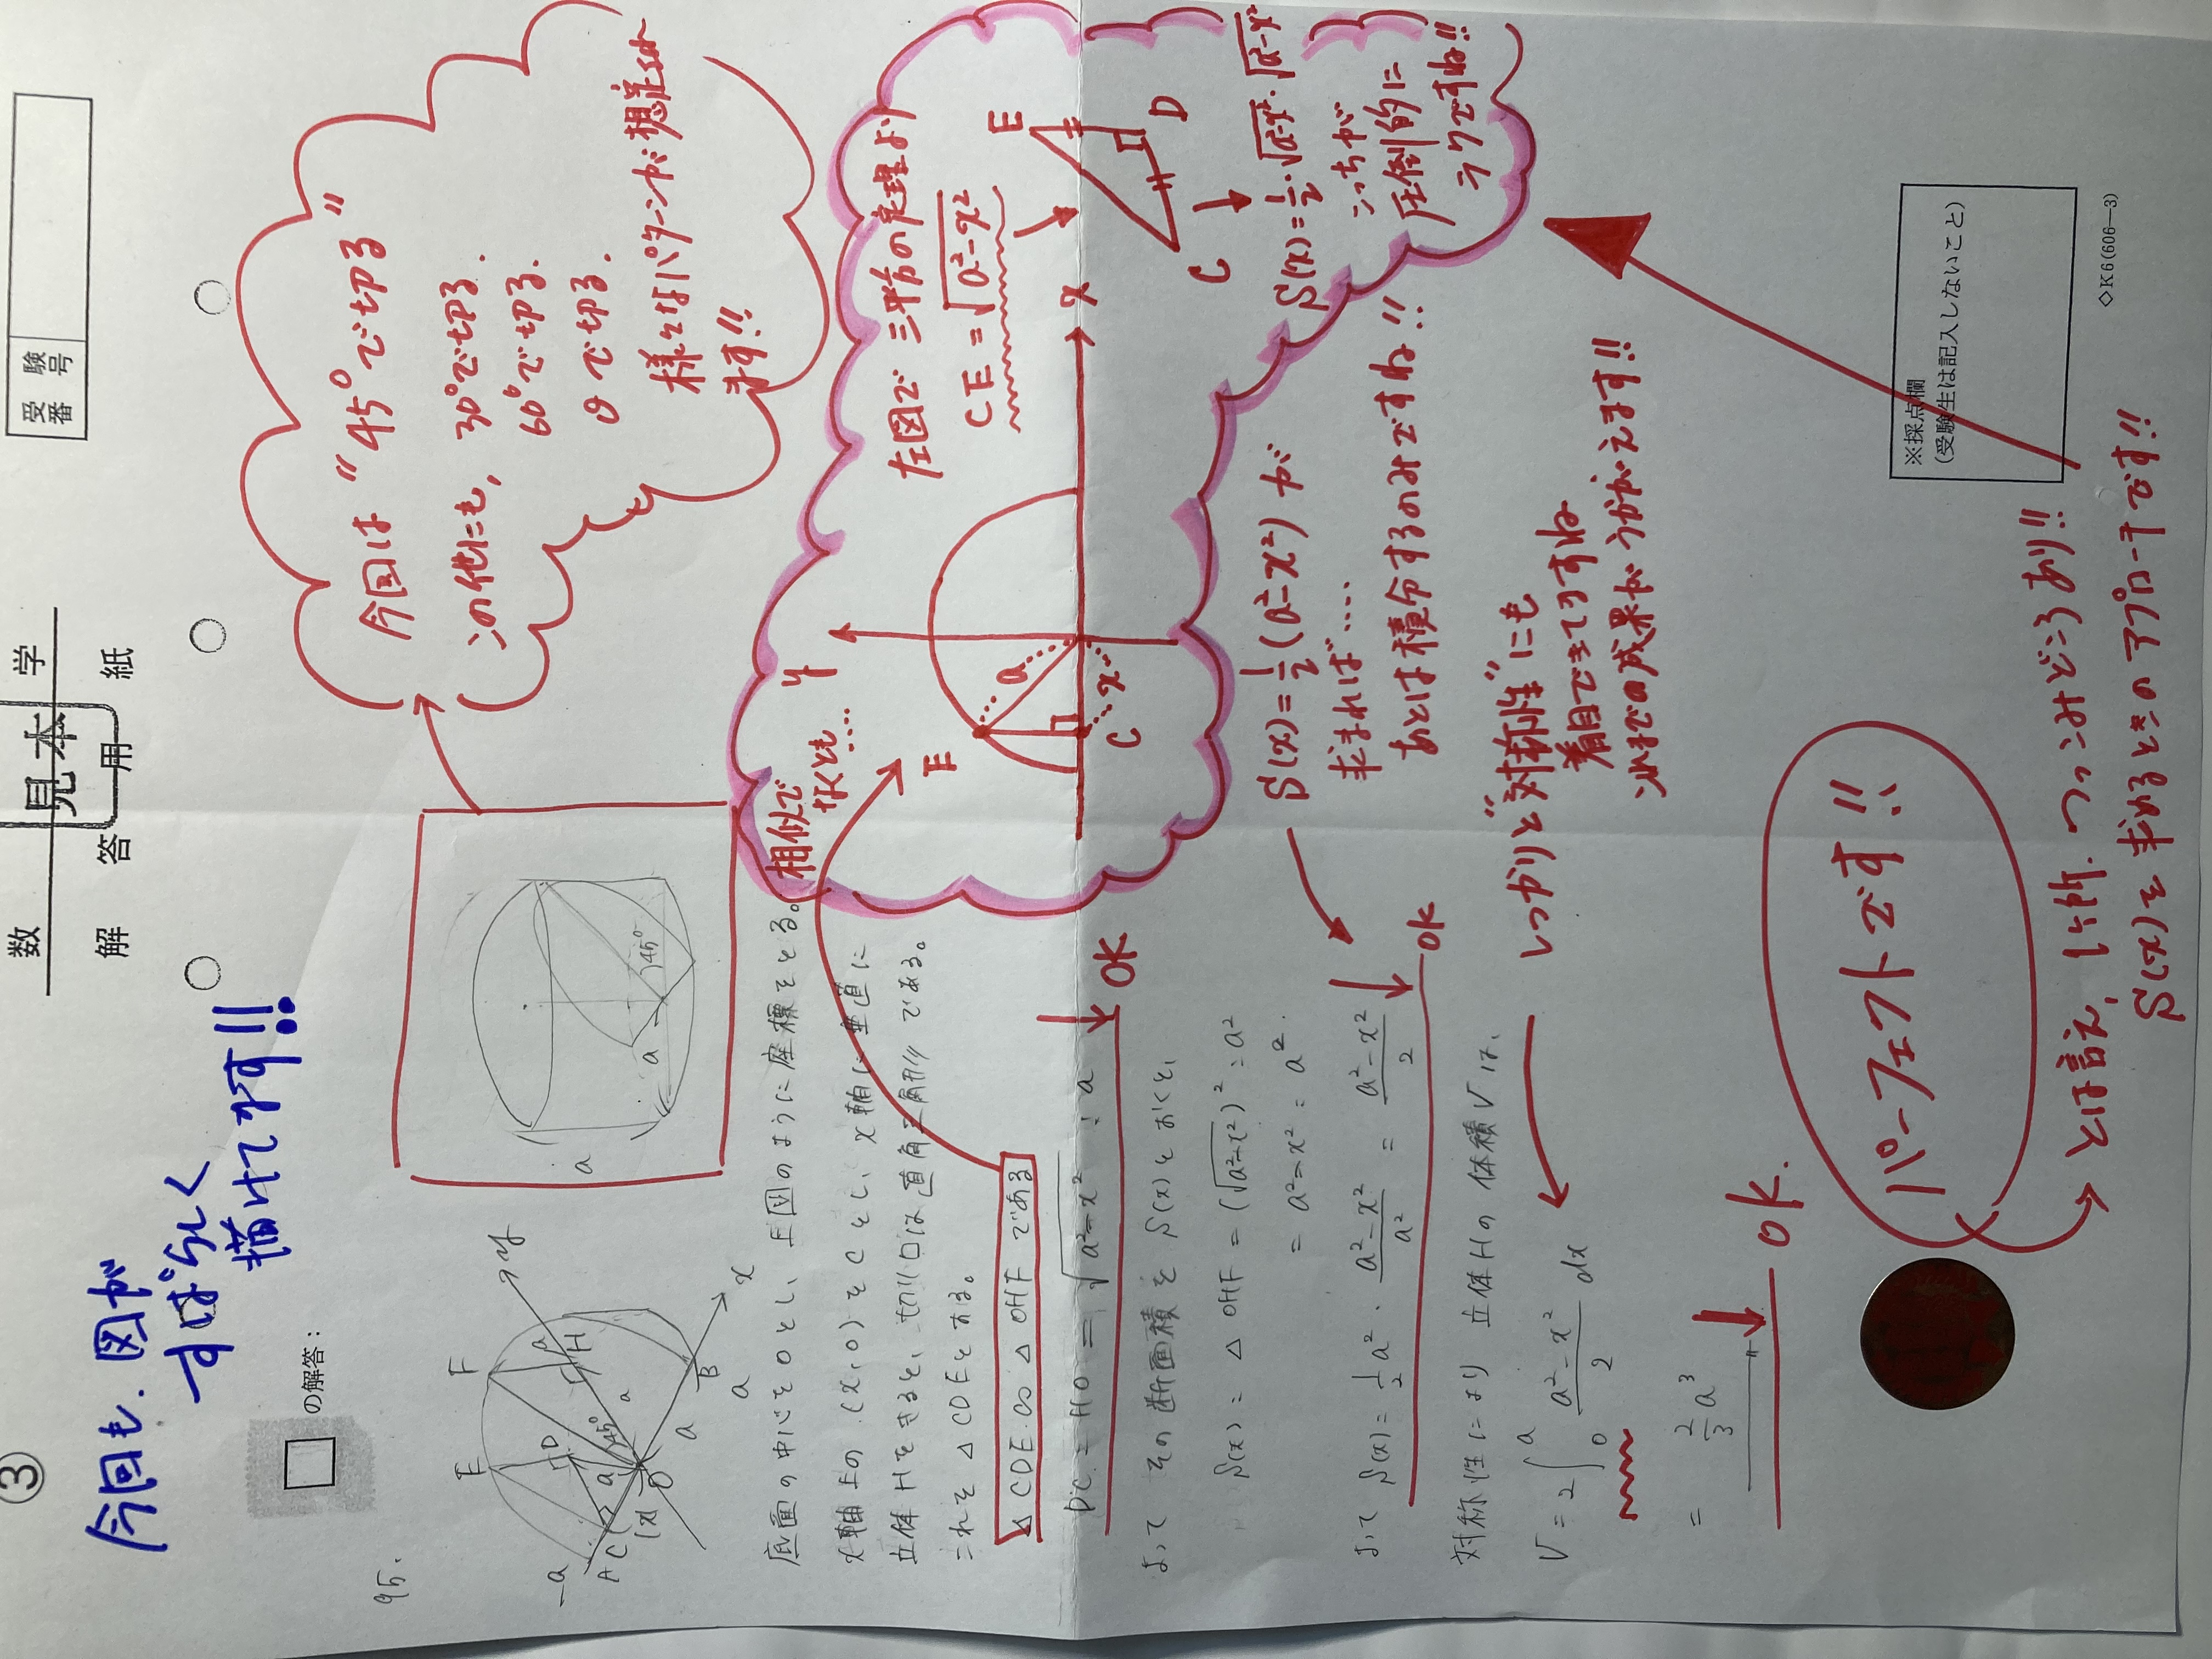 ③
数学
見本
解答用紙
受験番号
今回も、図が
すばらしく
描けてます!!
□の解答:
95.
E
F
y
D
H
a
a
45°
a
-a
A C
|x|
O
a
B
a
x
a
a
45°
今回は "45°で切る"
この他にも, 30°で切る.
60°で切る.
θで切る.
様々なパターンが想定され
ます!!
底面の中心をOとし、上図のように座標をとる。
x軸上の(x,0)をCとし、x軸に垂直に
立体Hをきると、切り口は直角三角形である。
これを△CDEとする。
△CDE∽△OHFである
DC:HO = √a²-x² : a
OK
よって その断面積をS(x)とおくと、
S(x):△OHF = (√a²-x²)² : a²
= a²-x² : a².
よって S(x)= 1/2 a² · (a²-x²)/a² = (a²-x²)/2
OK
対称性により 立体Hの体積Vは、
V = 2∫₀ᵃ (a²-x²)/2 dx
= 2/3 a³
〃
OK.
相似で
なくても...
y
E
a
C
x
x
左図で三平方の定理より
CE = √a²-x²
E
D
C
S(x)=1/2·√a²-x²·√a²-x²
こっちが
圧倒的に
ラクですね!!
S(x)=1/2(a²-x²)が
求まれば....
あとは積分するのみですね!!
しっかりと"対称性"にも
着目できてますね
これまでの成果がうかがえます!!
パーフェクトです!!
とは言え, 1ヶ所. つっこみどころあり!!
S(x)を求めるときのアプローチです!!
※採点欄
(受験生は記入しないこと)
◇K6(606—3)